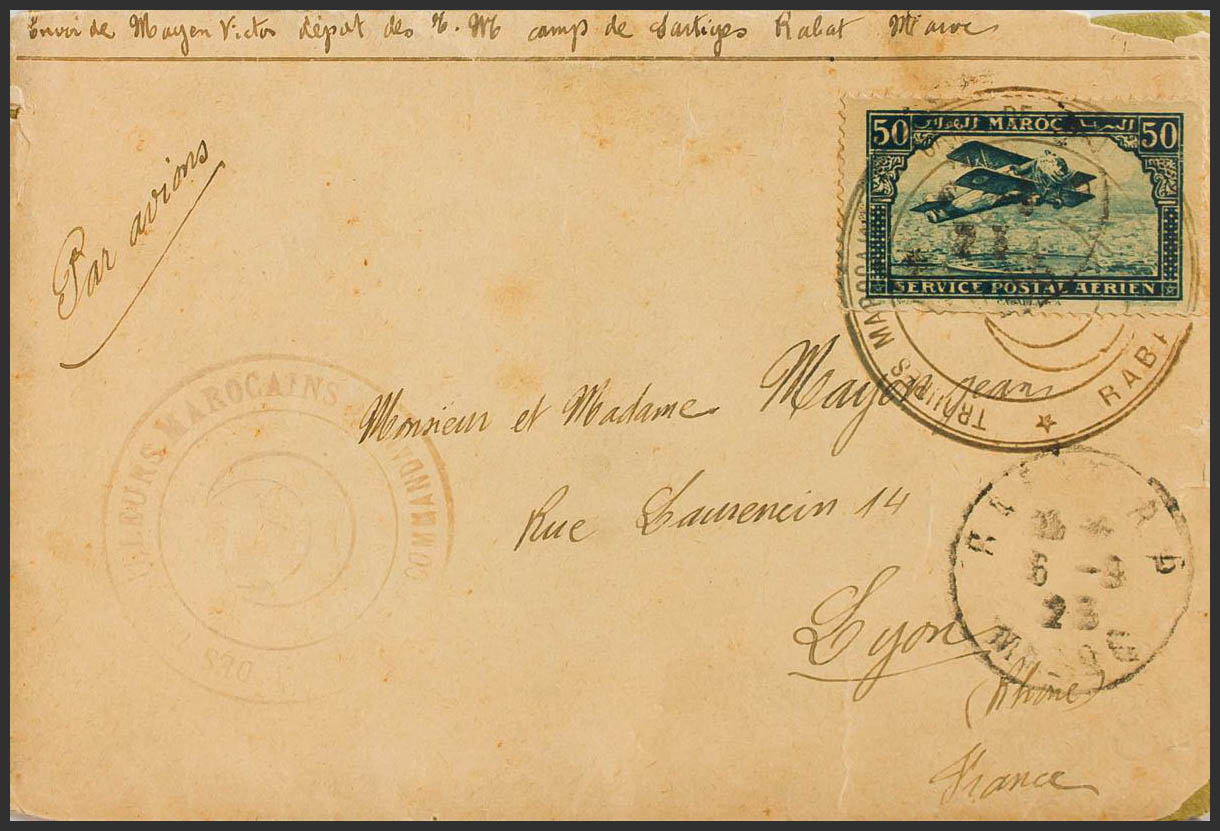 Envoi de Mayen Victor dépôt des T. M camp de Sartiges Rabat Maroc
Par avions
50 MAROC 50
SERVICE POSTAL AERIEN
TROUPES MAROCA
RABA
Monsieur et Madame Mayen Jean
Rue Laurencin 14
Lyon
(Rhône)
France
RABAT R.P
6 -9
23
MAROC
TIRAILLEURS MAROCAINS
COMMANDA
DES